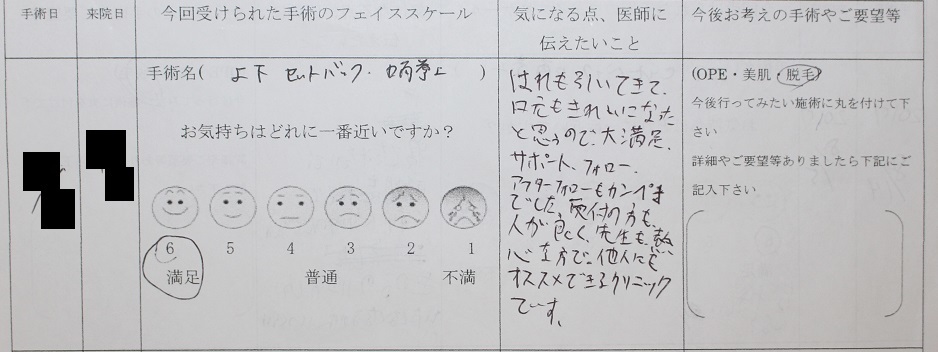 手術日
来院日
今回受けられた手術のフェイススケール
気になる点、医師に
伝えたいこと
今後お考えの手術やご要望等
手術名( 上下 セットバック・ )
お気持ちはどれに一番近いですか？
6 5 4 3 2 1
満足 普通 不満
はれも引いてきて、
口元もきれいになった
と思うので、大満足。
サポート、フォロー、
アフターフォローもカンペキ
でした。受付の方も、
人が良く、先生も、熱
心な方で、他人にも
オススメできるクリニック
です。
(OPE・美肌・脱毛)
今後行ってみたい施術に丸を付けて下
さい
詳細やご要望等ありましたら下記にご
記入下さい